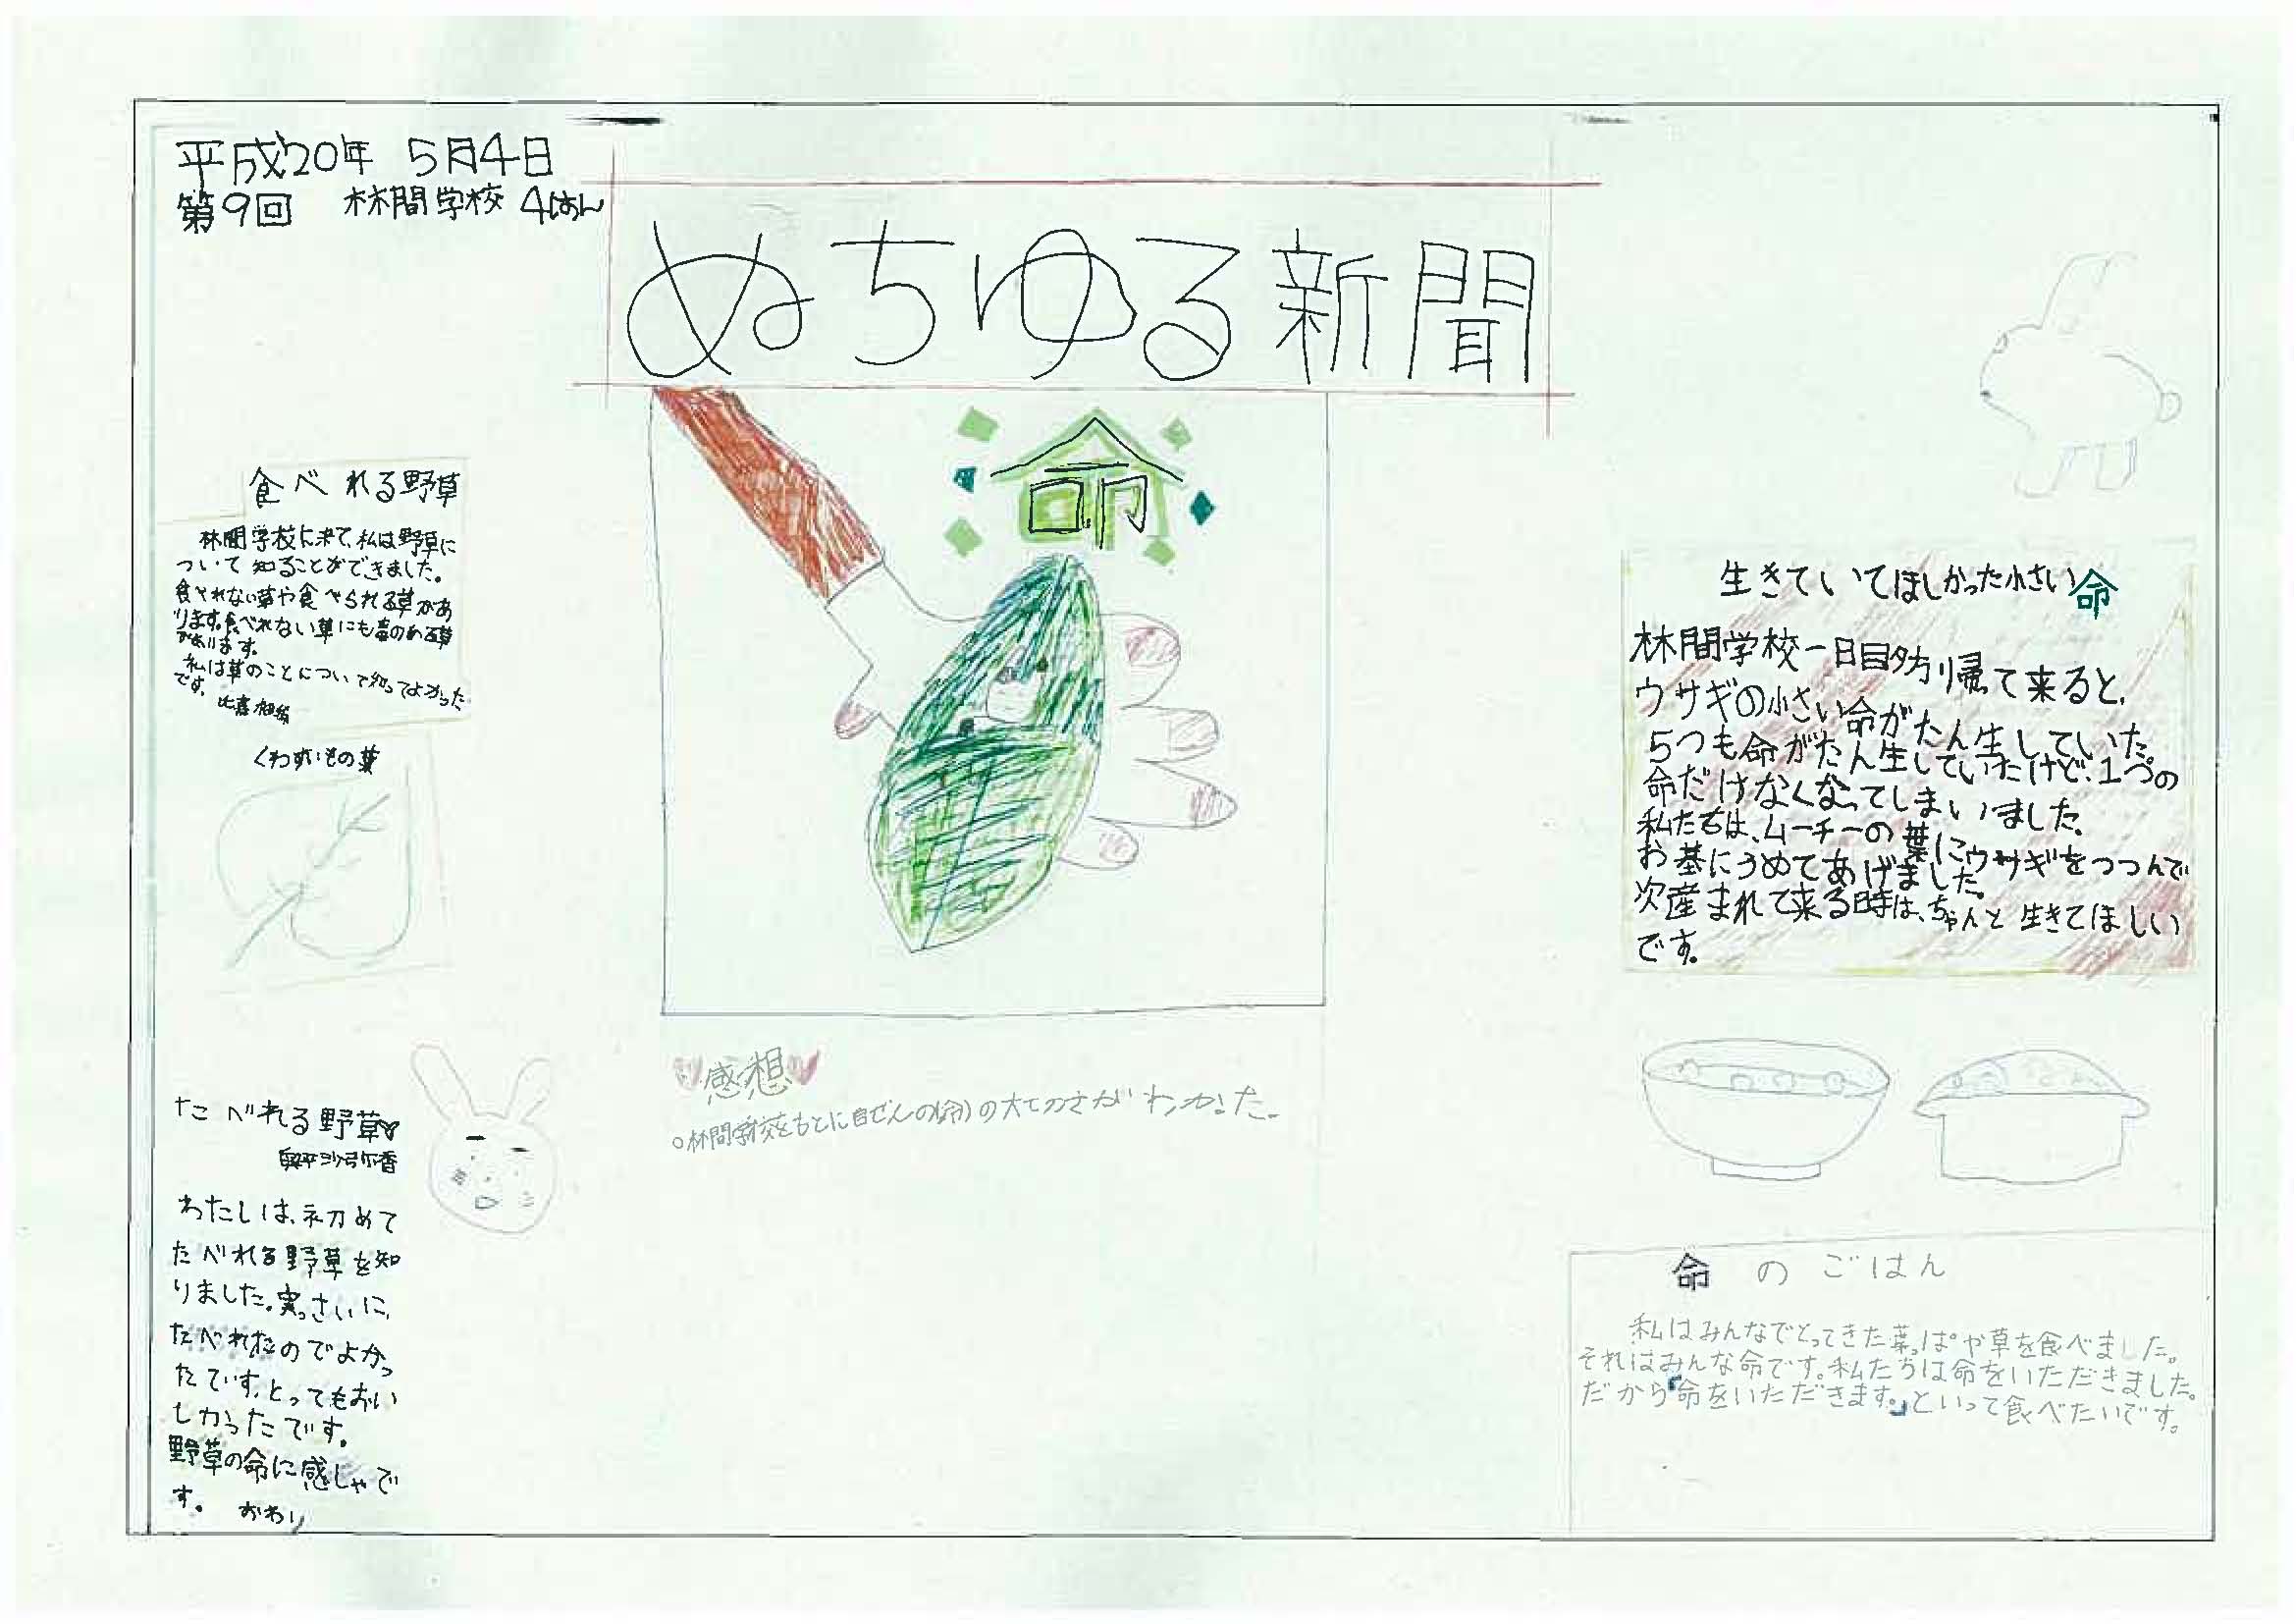 平成20年 5月4日
第9回 林間学校 4はん
ぬちゆる新聞
命
食べれる野草
林間学校に来て、私は野草に
ついて知ることができました。
食べれない草や食べられる草があ
ります。食べれない草にも毒のある草
があります。
私は草のことについて知ってよかった
です。 比嘉
くわずいもの葉
たべれる野草
わたしは、初めて
たべれる野草を知
りました。実っさいに、
たべれたのでよかっ
たです。とってもおい
しかったです。
野草の命に感しゃで
す。 おわり
感想
○林間学校をもとに自ぜんの(命)の大せつさがわかった。
生きていてほしかった小さい命
林間学校一日目夕方帰って来ると、
ウサギの小さい命がたん生していた。
5つも命がたん生していたけど、1つの
命だけなくなってしまいました。
私たちは、ムーチーの葉にウサギをつつんで
お墓にうめてあげました。
次産まれて来る時は、ちゃんと生きてほしい
です。
命のごはん
私はみんなでとってきた葉っぱや草を食べました。
それはみんな命です。私たちは命をいただきました。
だから「命をいただきます。」といって食べたいです。